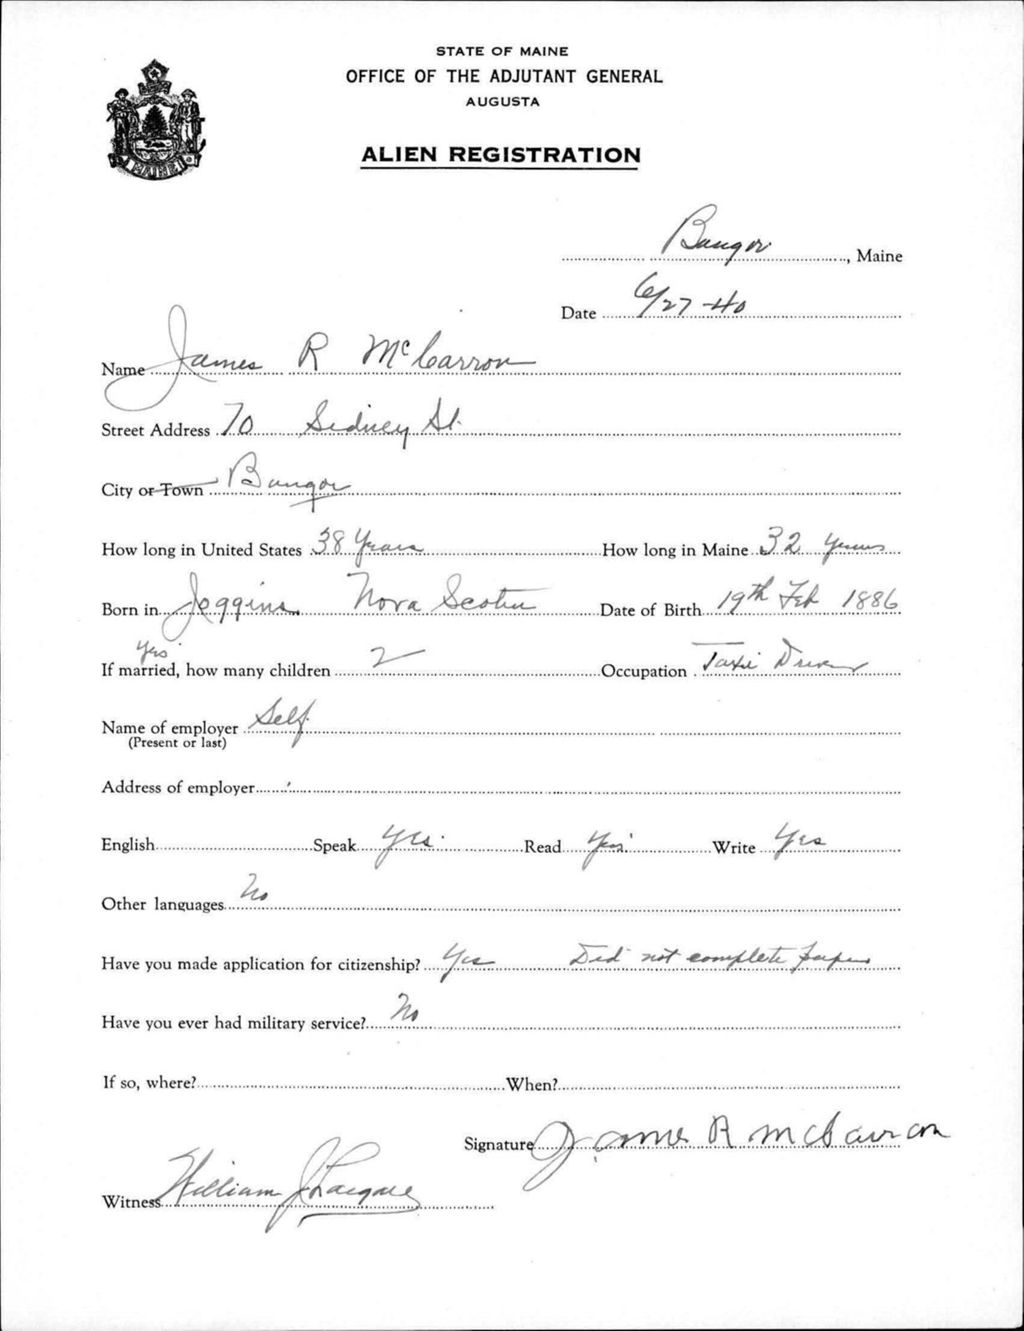 STATE OF MAINE
OFFICE OF THE ADJUTANT GENERAL
AUGUSTA
ALIEN REGISTRATION
MAINE
Bangor, Maine
Date 6/27-40
Name James R McCarron
Street Address 70 Sidney St.
City or Town Bangor
How long in United States 38 Years How long in Maine 32 years
Born in Joggins, Nova Scotia Date of Birth 19th Feb 1886
Yes
If married, how many children 2 Occupation Taxi Driver
Name of employer Self
(Present or last)
Address of employer
English Speak Yes Read Yes Write Yes
Other languages No
Have you made application for citizenship? Yes Did not complete papers
Have you ever had military service? No
If so, where? When?
Signature James R McCarron
Witness William J